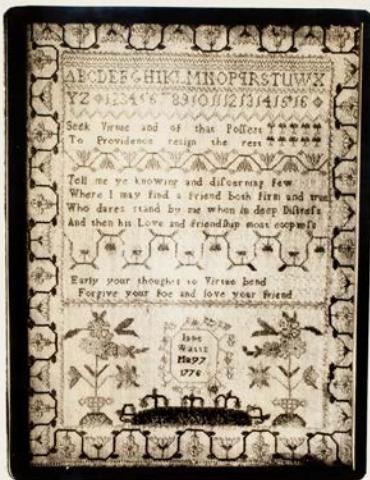 ABCDEFGHIKLMNOPQRSTUWX
YZ 12345678910111213141516
Seek Virtue and of that Possest
To Providence resign the rest
Tell me ye knowing and discerning few
Where I may find a friend both firm and true
Who dares stand by me when in deep Distress
And then his Love and friendship most express
Early your thoughts to Virtue bend
Forgive your Foe and love your friend
Jane
May 7
1776